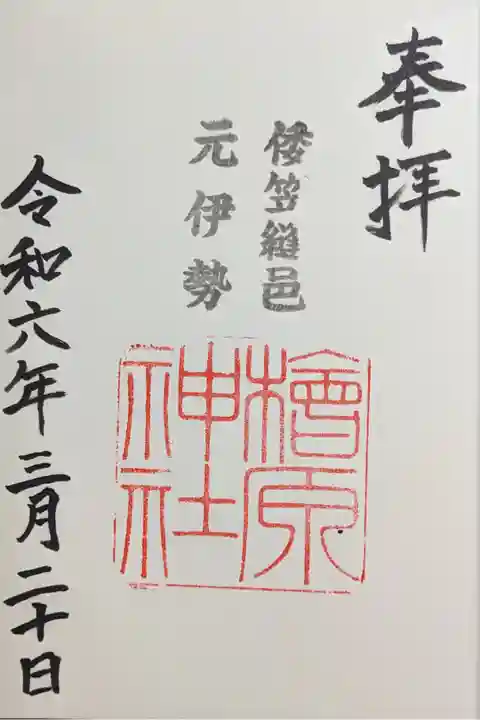 奉拝
倭笠縫邑
元伊勢
檜原
神社
令和六年三月二十日